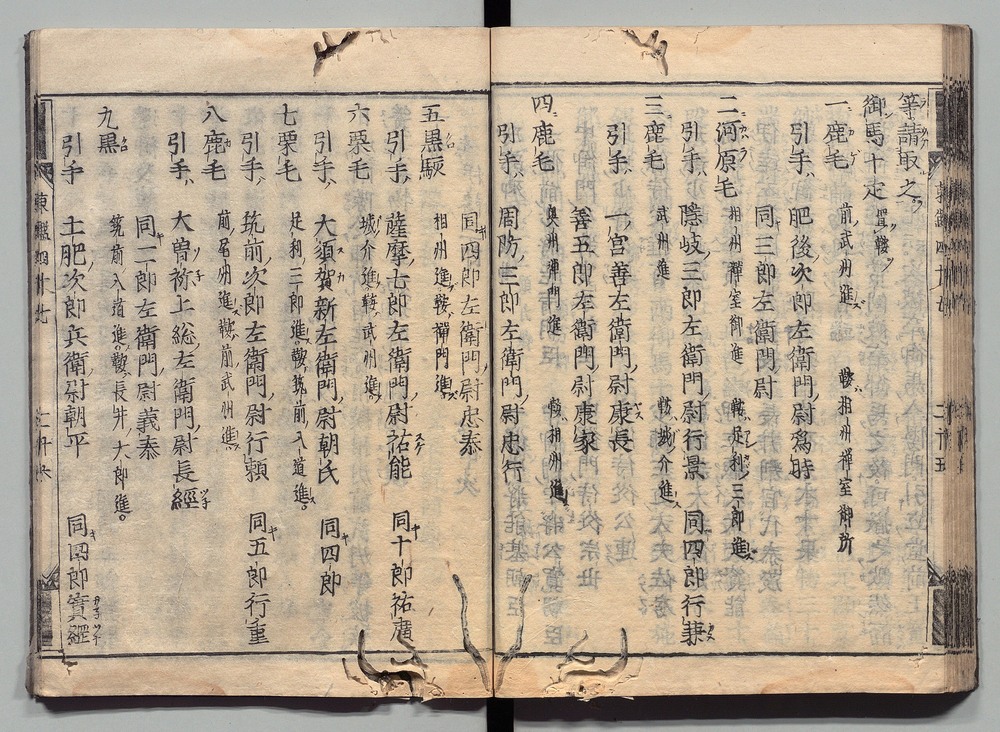 等請取之
御馬十疋 置鞍
一鹿毛 前武州進 鞍相州禅室御所
引手 肥後次郎左衛門尉爲時
同三郎左衛門尉
二河原毛 相州禅室御進 鞍足利三郎進
引手 隠岐三郎左衛門尉行景 同四郎行兼
三鹿毛 武州進 鞍城介進
引手 一宮善左衛門尉康長
善五郎左衛門尉康家
四鹿毛 奥州禅門進 鞍相州進
引手 周防三郎左衛門尉忠行
同四郎左衛門尉忠泰
五黒駮 相州進鞍禅門進
引手 薩摩七郎左衛門尉祐能 同十郎祐廣
六栗毛 城介進鞍武州進
引手 大須賀新左衛門尉朝氏 同四郎
七栗毛 足利三郎進鞍筑前入道進
引手 筑前次郎左衛門尉行頼 同五郎行重
八鹿毛 前尾州進鞍前武州進
引手 大曽祢上総左衛門尉長經
同二郎左衛門尉義泰
九黒 筑前入道進鞍長井大郎進
引手 土肥次郎兵衛尉朝平 同四郎實經